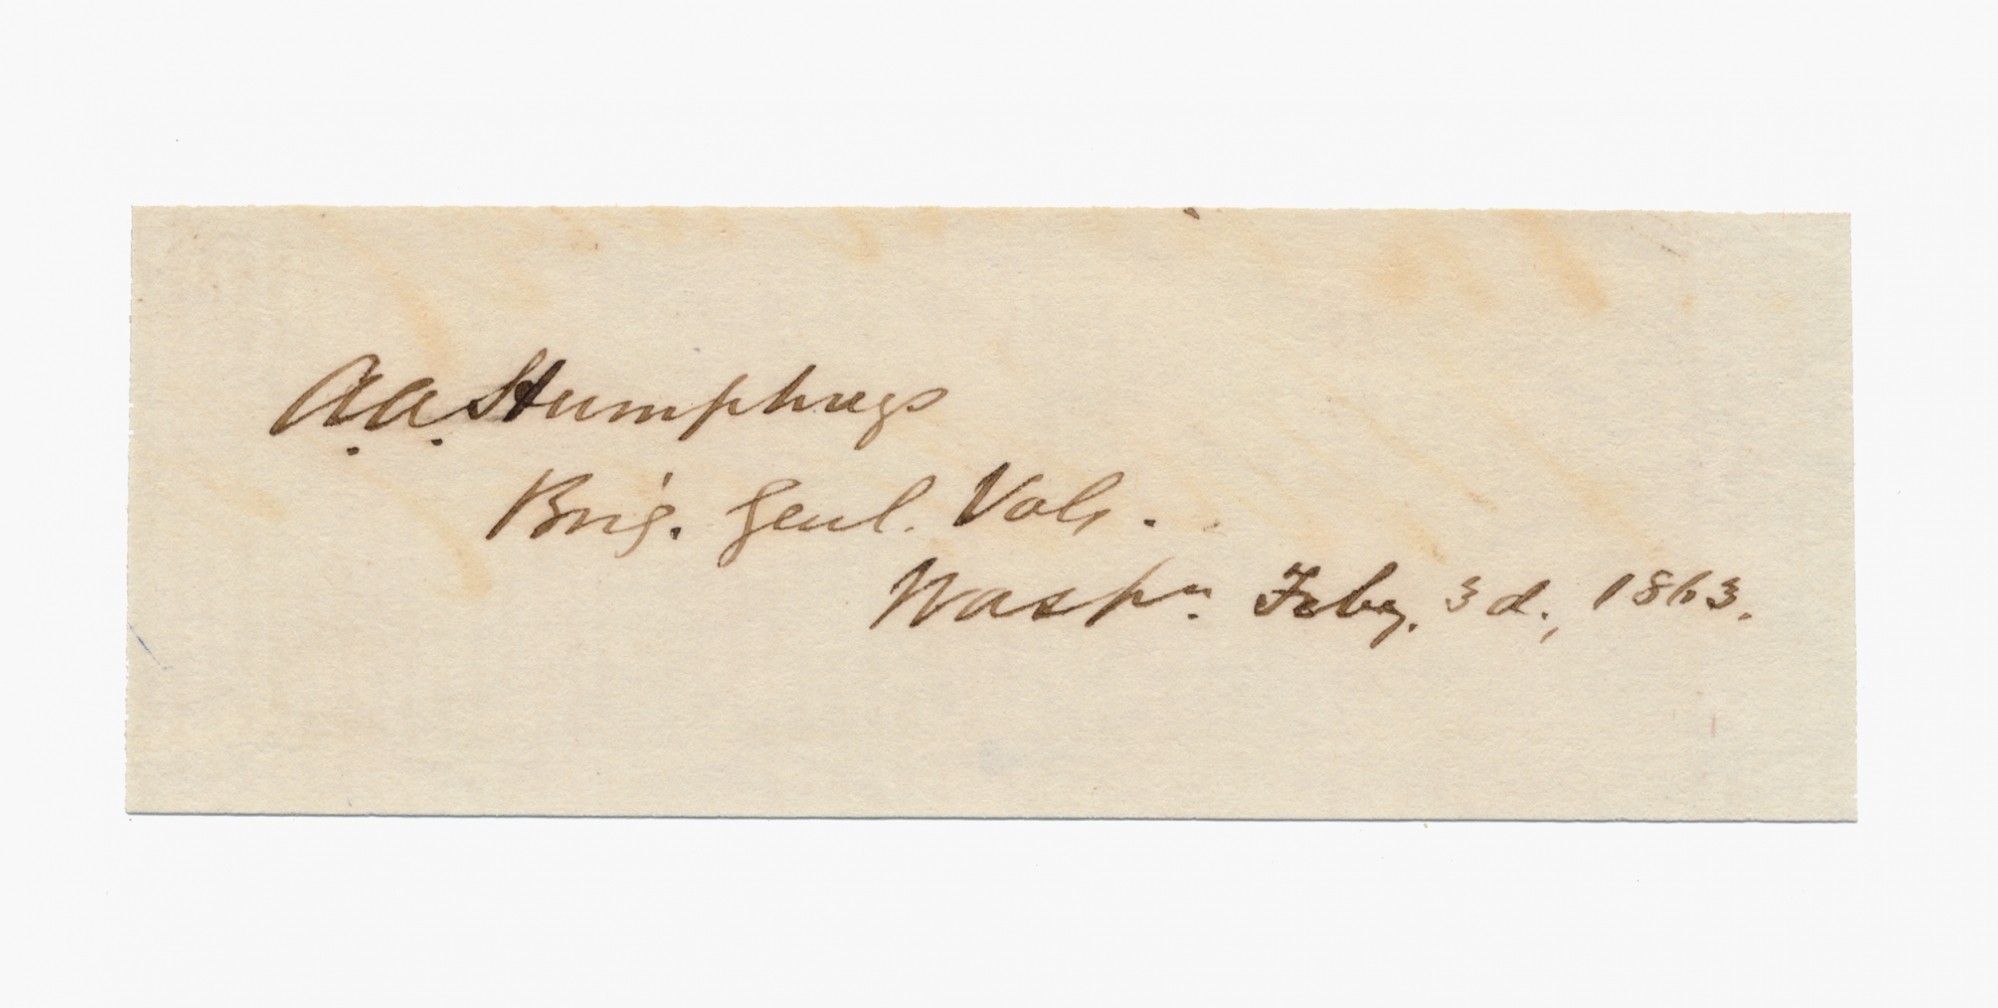 A.A. Humphreys
Brig. Genl. Vols.
Washn. Feby. 3d., 1863.